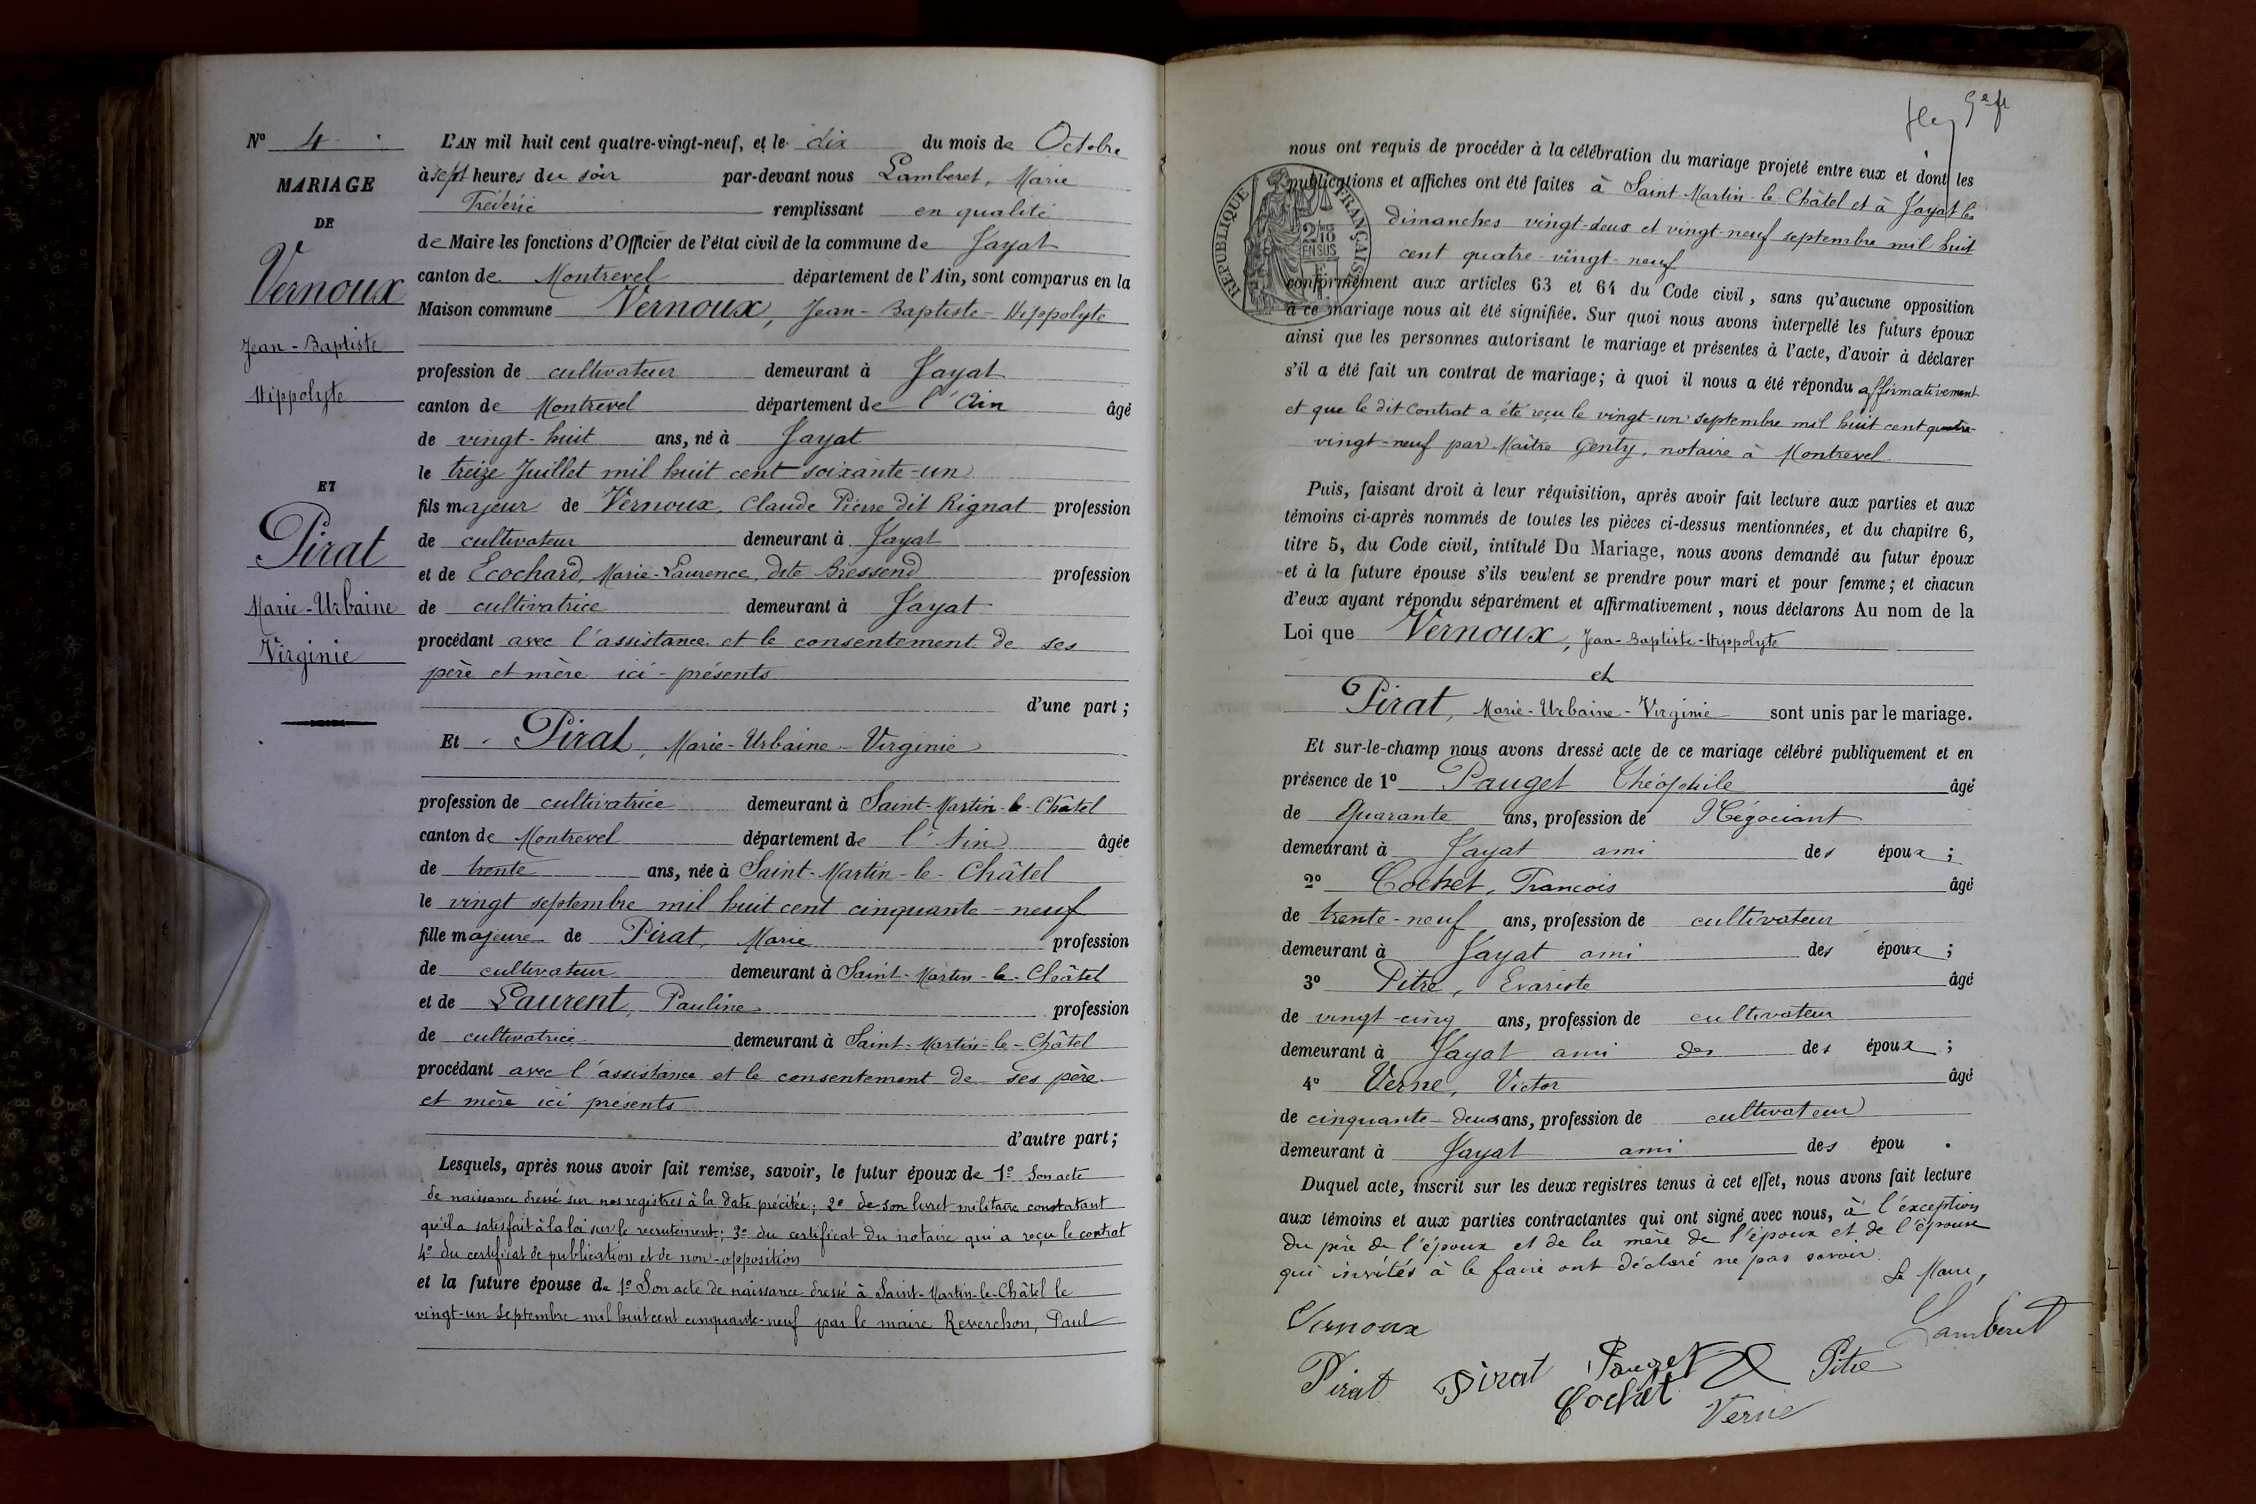 N° 4
MARIAGE
DE
Vernoux
Jean-Baptiste
Hippolyte
ET
Pirat
Marie-Urbaine
Virginie
L'AN mil huit cent quatre-vingt-neuf, et le dix du mois de Octobre
à sept heures du soir par-devant nous Lamberet, Marie
Fréderic remplissant en qualité
de Maire les fonctions d'Officier de l'état civil de la commune de Jayat
canton de Montrevel département de l'Ain, sont comparus en la
Maison commune Vernoux, Jean-Baptiste-Hippolyte
profession de cultivateur demeurant à Jayat
canton de Montrevel département de l'Ain âgé
de vingt-huit ans, né à Jayat
le treize Juillet mil huit cent soixante-un
fils majeur de Vernoux, Claude Pierre dit Rignat profession
de cultivateur demeurant à Jayat
et de Ecochard, Marie-Laurence, dite Bressend profession
de cultivatrice demeurant à Jayat
procédant avec l'assistance et le consentement de ses
père et mère ici-présents
d'une part;
Et Pirat, Marie-Urbaine-Virginie
profession de cultivatrice demeurant à Saint-Martin-le-Châtel
canton de Montrevel département de l'Ain âgée
de trente ans, née à Saint-Martin-le-Châtel
le vingt septembre mil huit cent cinquante-neuf
fille majeure de Pirat, Marie profession
de cultivateur demeurant à Saint-Martin-le-Châtel
et de Laurent, Pauline profession
de cultivatrice demeurant à Saint-Martin-le-Châtel
procédant avec l'assistance et le consentement de ses père
et mère ici présents
d'autre part;
Lesquels, après nous avoir fait remise, savoir, le futur époux de 1° Son acte
de naissance dressé sur nos registres à la date précitée; 2° de son livret militaire constatant
qu'il a satisfait à la loi sur le recrutement; 3° du certificat du notaire qui a reçu le contrat
4° du certificat de publication et de non-opposition
et la future épouse de 1° Son acte de naissance dressé à Saint-Martin-le-Châtel le
vingt-un Septembre mil huit cent cinquante-neuf par le maire Reverchon, Paul
nous ont requis de procéder à la célébration du mariage projeté entre eux et dont les
publications et affiches ont été faites à Saint-Martin-le-Châtel et à Jayat les
dimanches vingt-deux et vingt-neuf septembre mil huit
cent quatre-vingt-neuf
RÉPUBLIQUE FRANÇAISE
2/10 EN SUS
conformément aux articles 63 et 64 du Code civil, sans qu'aucune opposition
à ce mariage nous ait été signifiée. Sur quoi nous avons interpellé les futurs époux
ainsi que les personnes autorisant le mariage et présentes à l'acte, d'avoir à déclarer
s'il a été fait un contrat de mariage; à quoi il nous a été répondu affirmativement
et que le dit contrat a été reçu le vingt-un septembre mil huit cent quatre-
vingt-neuf par Maître Genty, notaire à Montrevel
Puis, faisant droit à leur réquisition, après avoir fait lecture aux parties et aux
témoins ci-après nommés de toutes les pièces ci-dessus mentionnées, et du chapitre 6,
titre 5, du Code civil, intitulé Du Mariage, nous avons demandé au futur époux
et à la future épouse s'ils veulent se prendre pour mari et pour femme; et chacun
d'eux ayant répondu séparément et affirmativement, nous déclarons Au nom de la
Loi que Vernoux, Jean-Baptiste-Hippolyte
et
Pirat, Marie-Urbaine-Virginie sont unis par le mariage.
Et sur-le-champ nous avons dressé acte de ce mariage célébré publiquement et en
présence de 1° Pauget Théophile âgé
de Quarante ans, profession de Négociant
demeurant à Jayat ami des époux;
2° Cochet, Francois âgé
de trente-neuf ans, profession de cultivateur
demeurant à Jayat ami des époux;
3° Pitre, Evariste âgé
de vingt-cinq ans, profession de cultivateur
demeurant à Jayat ami des des époux;
4° Verne, Victor âgé
de cinquante-deux ans, profession de cultivateur
demeurant à Jayat ami des épou.
Duquel acte, inscrit sur les deux registres tenus à cet effet, nous avons fait lecture
aux témoins et aux parties contractantes qui ont signé avec nous, à l'exception
du père de l'époux et de la mère de l'époux et de l'épouse
qui invités à le faire ont déclaré ne pas savoir.
Le Maire,
Lamberet
Vernoux
Pirat Pirat Pauget Pitre
Cochet Verne